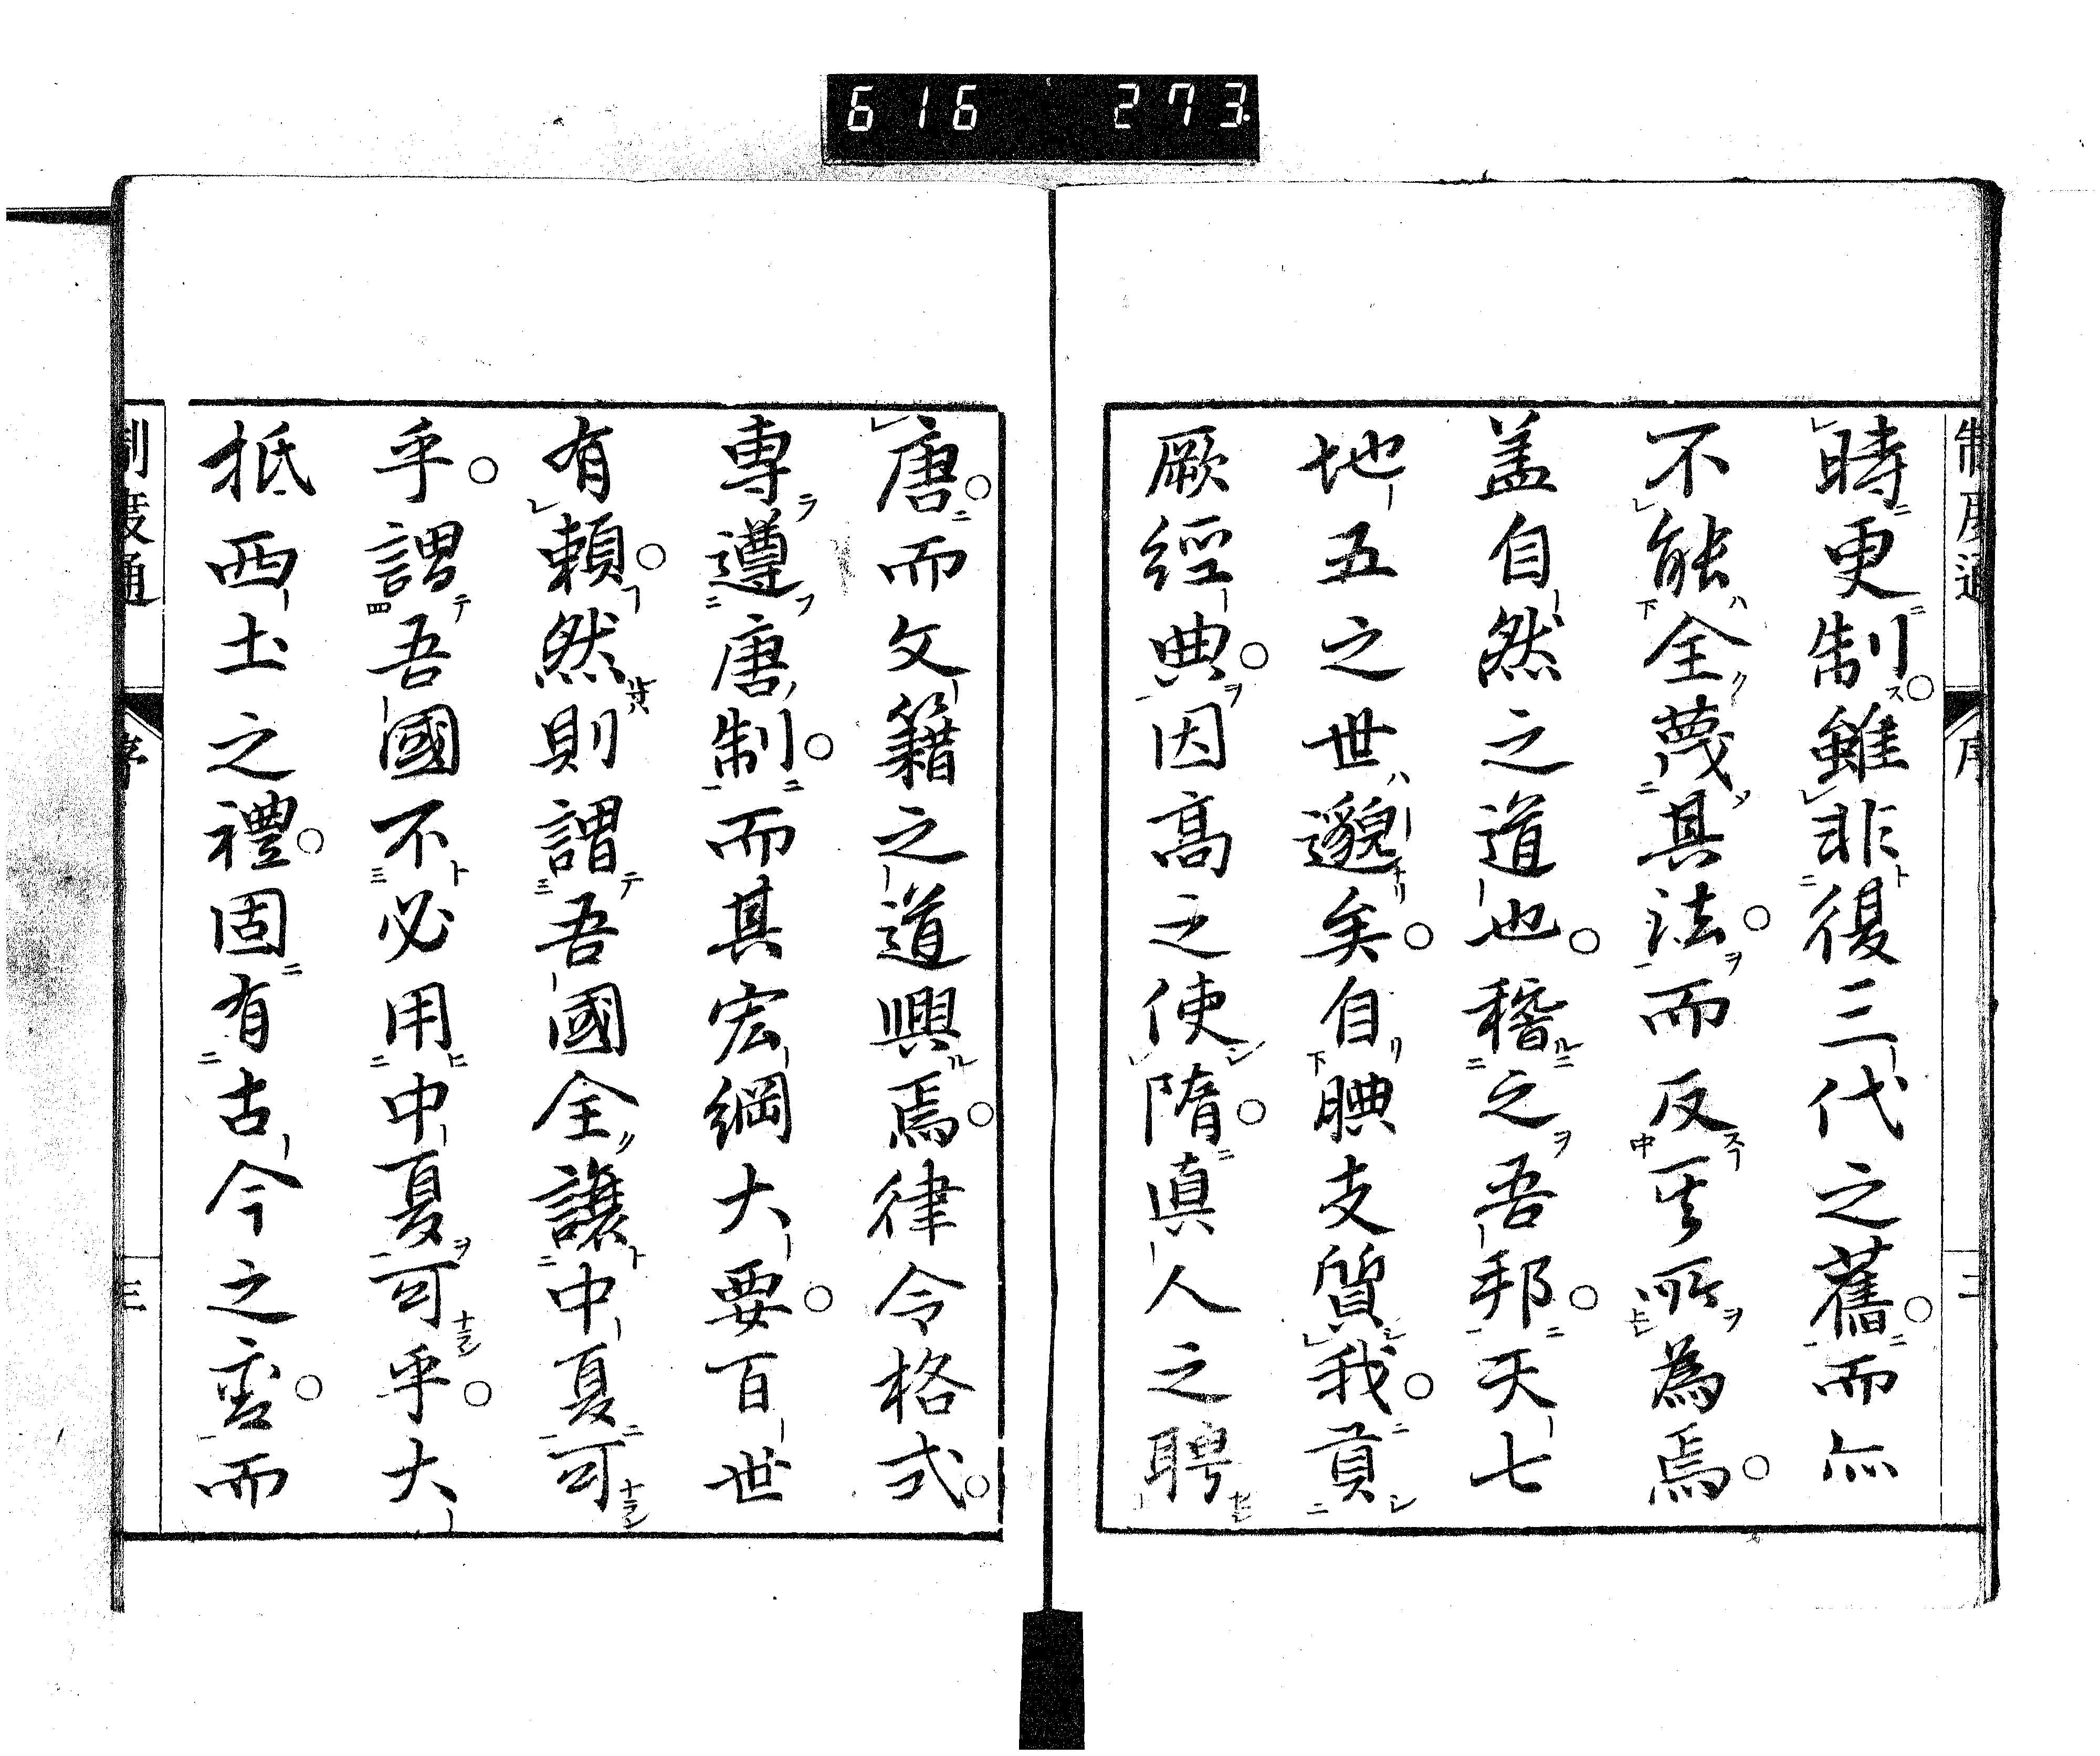 616 273
制度通 序 二
時更制。雖非復三代之舊。而亦
不能全蔑其法。而反其所為焉。
盖自然之道也。稽之吾邦。天七
地五之世邈矣。自腆支質我。貢
厥經典。因高之使隋。真人之聘
唐。而文籍之道興焉。律令格式。
専遵唐制。而其宏綱大要。百世
有頼。然則謂吾國全讓中夏可
乎。謂吾國不必用中夏可乎。大
抵西土之禮。固有古今之。而
制度通 序 三